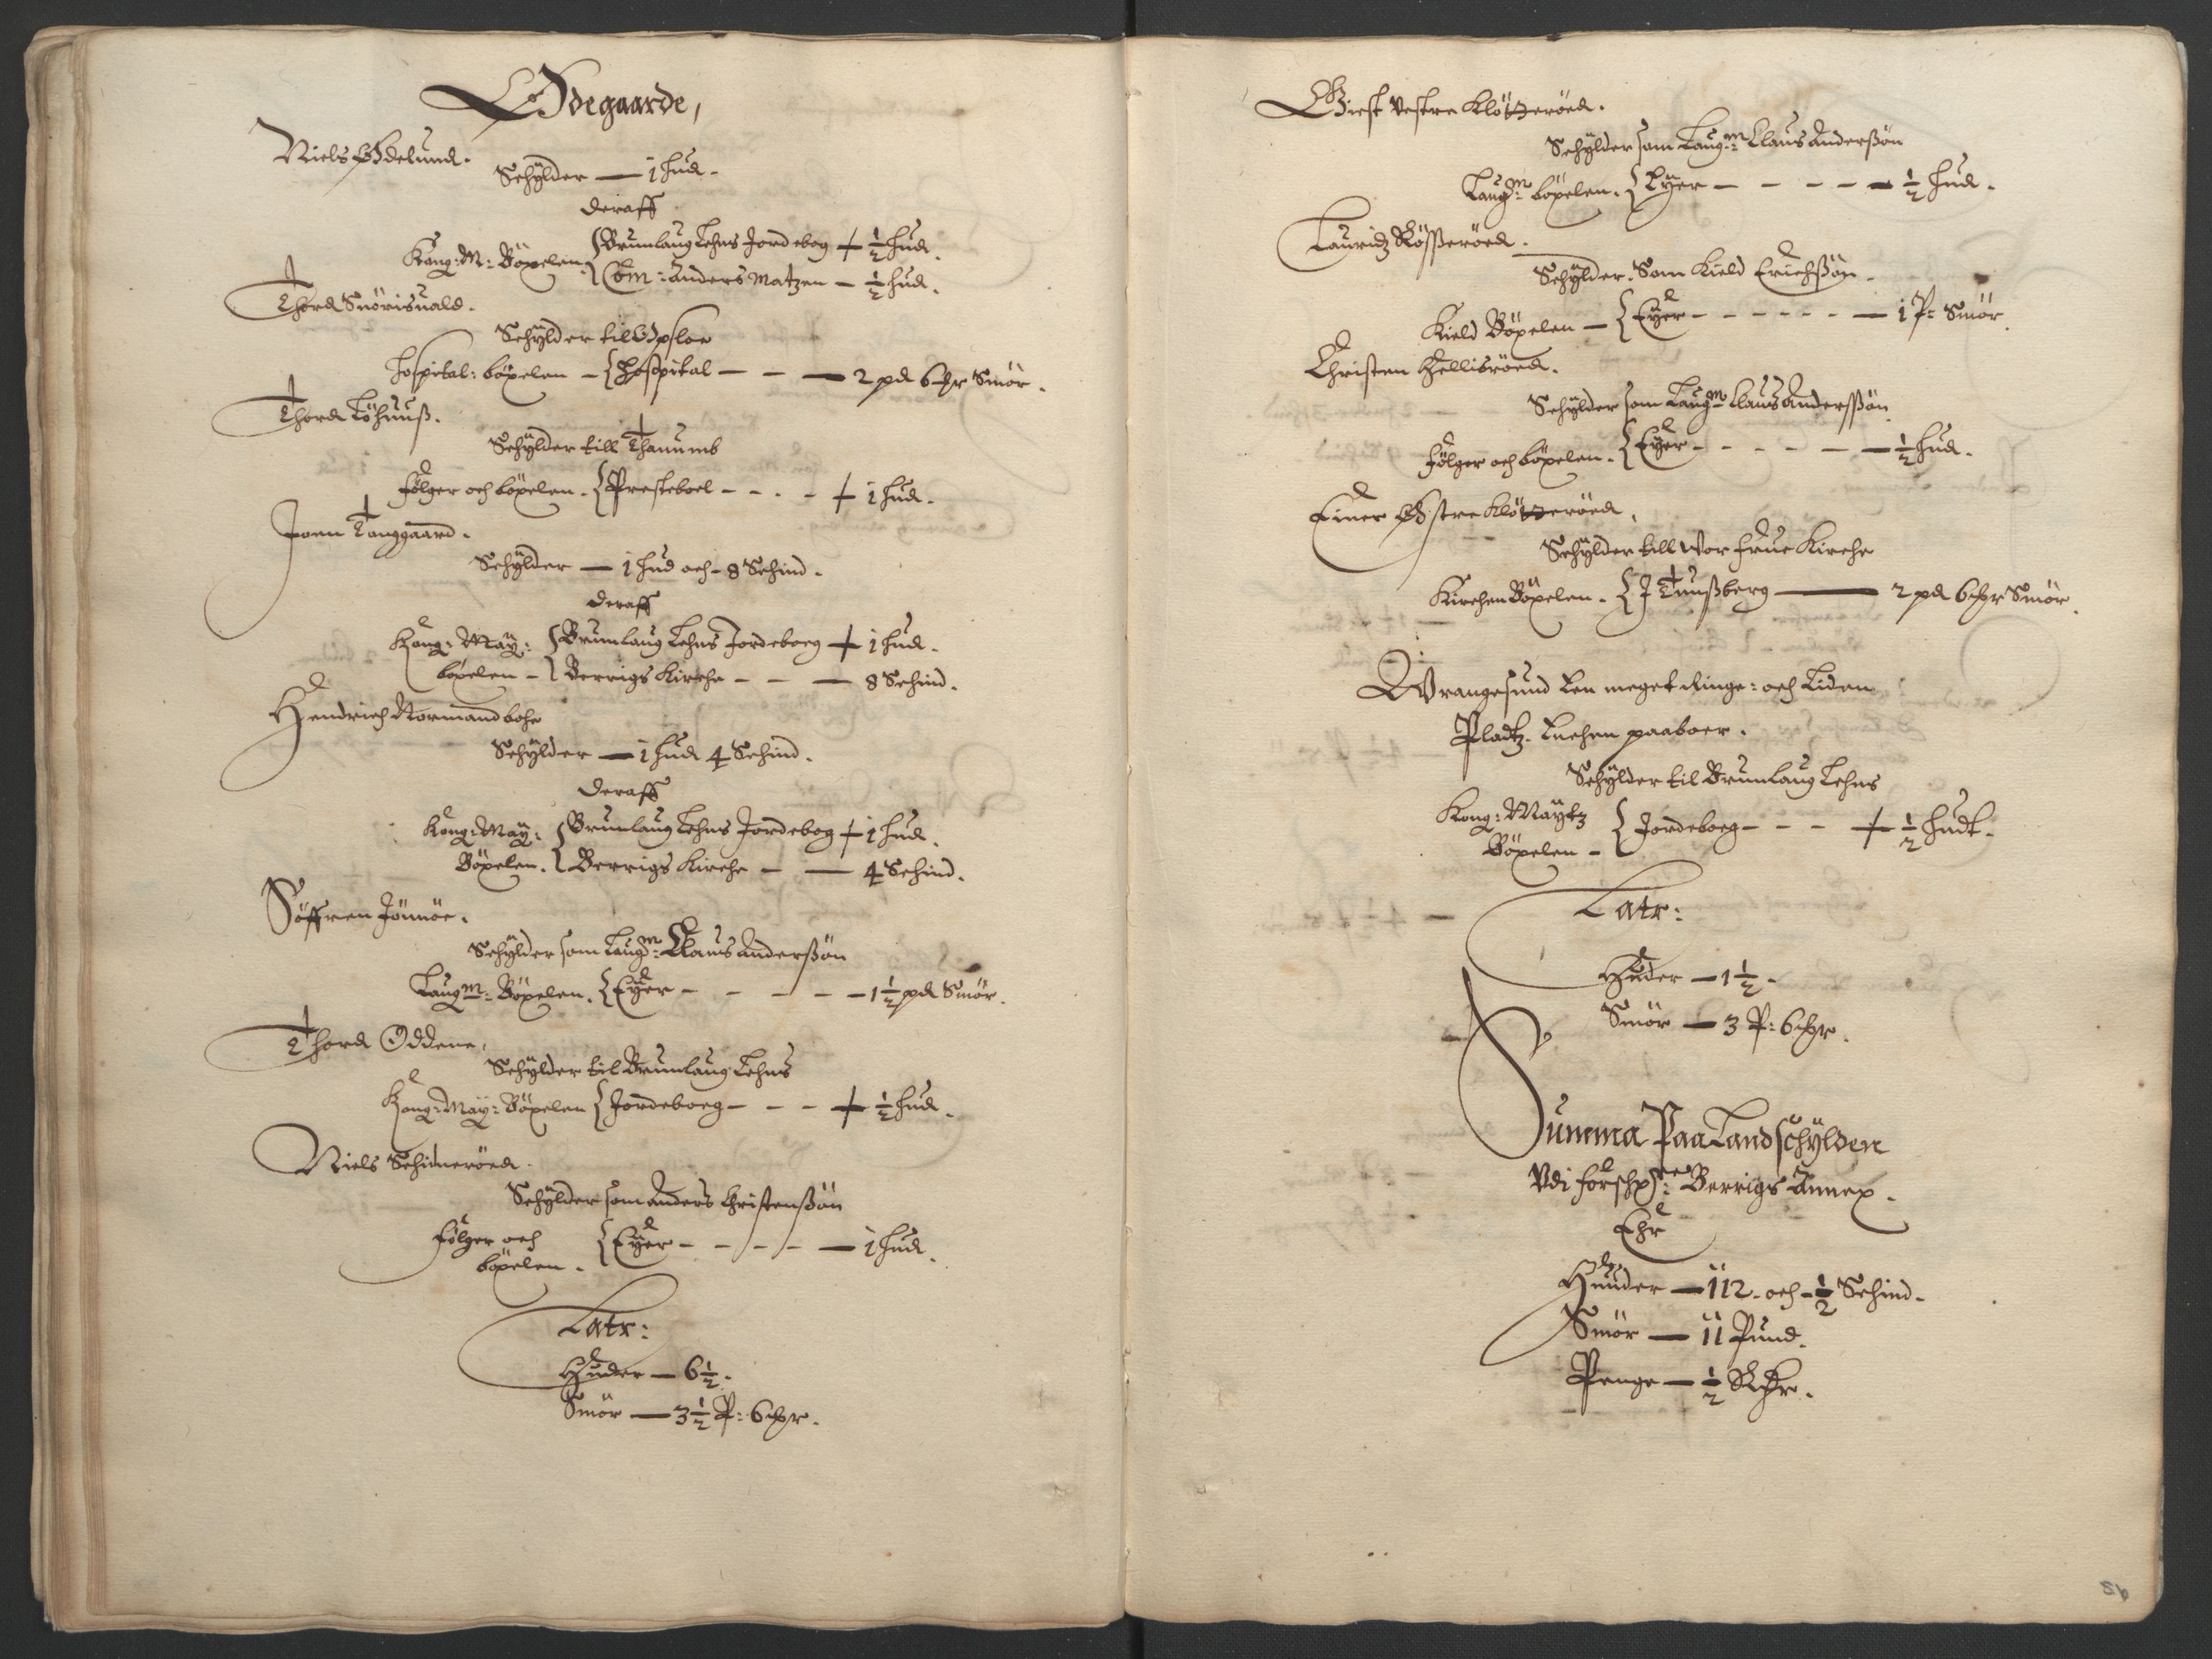 Ødegaarde,
Niels Ødelund.
Schÿlder — 1 hud.
deraff
Kong: M: Böxelen. { Brunlaug Lehns Jordebog + ½ hud.
Com: Anders Matzen — ½ hud.
Thord Snörisuald.
Schÿlder til Opsloe
Hospital: böxelen — { Hospital — — — 2 pd 6 mr Smör.
Thord Löhuuß.
Schÿlder till Thanumb
Fölger och böxelen. { Presteboel - - - + 1 hud.
Joen Tanggaard.
Schÿlder — 1 hud och - 8 Schind.
deraff
Kong: Maÿ: { Brunlaug Lehns Jordeboeg + 1 hud.
böxelen - Berrigs Kirche - - — 8 Schind.
Hendrich Normandbohe
Schÿlder — 1 hud 4 Schind.
deraff
Kong: Maÿ: { Brunlaug Lehns Jordebog + 1 hud.
Böxelen. Berrigs Kirche - — 4 Schind.
Söffren Jönnöe.
Schÿlder som Laugm: Claus Anderßön
Laugm: Böxelen. { Eÿer - - - - — 1½ pd Smör.
Thord Oddene,
Schÿlder til Brunlaug Lehns
Kong: Maÿ: Böxelen { Jordeboeg - - - + ½ hud.
Niels Schinneröed.
Schÿlder som Anders Christenßön
Fölger och { Eÿer - - - - — 1 hud.
böxelen.
Latr:
Huder — 6½.
Smör — 3½ P: 6 mr.
Giest Vestre Klötzeröed.
Schÿlder som Laugm: Claus Anderßön
Laugm: böxelen. { Eÿer - - - - — ½ hud.
Lauridz Rößeröed.
Schÿlder. Som Kield Erichßön.
Kield Böxelen — { Eÿer - - - - - — 1 P: Smör.
Christen Hellisröed.
Schÿlder som Laugm Claus Anderßön
Fölger och böxelen. { Eÿer - - - - — ½ hud.
Einer Østre Klötzeröed.
Schÿlder till Vor Frue Kirche
Kirchen Böxelen. { J Tunßberg — 2 pd 6 mr Smör.
Wrangesund Een meget Ringe: och Liden
Pladtz. Enchen paaboer.
Schÿlder til Brunlaug Lehns
Kong: Maÿtz { Jordeboeg - - - + ½ hudt.
Böxelen —
Latr:
Huder — 1½.
Smör — 3 P: 6 mr.
Summa Paa Landschÿlden
Vdi forschr: Berrigs Annex.
Ehr
Huuder — 112. och - ½ Schind.
Smör — 11 Pund.
Penge — ½ Rdr.